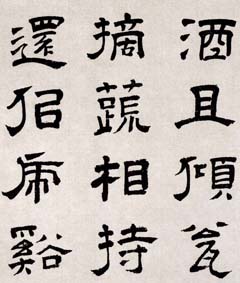 酒且傾瓮
摘蔬相持
還佀虎谿